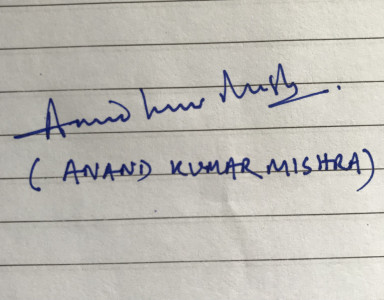 Anand Kumar Mishra.
( ANAND KUMAR MISHRA)